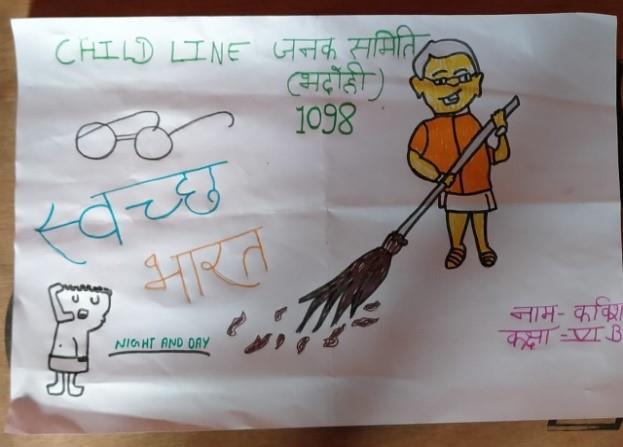 CHILD LINE जनक समिति
(भदोही)
1098
स्वच्छ
भारत
NIGHT AND DAY
नाम-
कक्षा - VI B